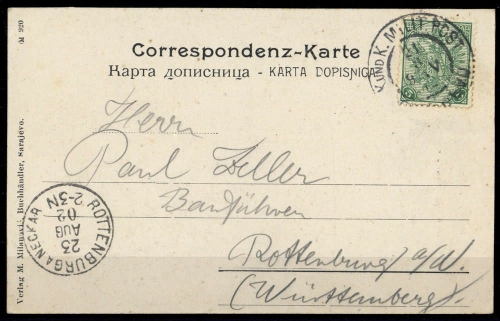 M 920
Correspondenz-Karte
Карта дописница - KARTA DOPISNICA
K. UND K. MILIT. POST
Herrn
Paul Zeller
Bauführer
Rottenburg a/N.
(Württemberg)
ROTTENBURG A NECKAR
23
AUG
02
2-3N
Verlag M. Milanavić, Buchhändler, Sarajevo.